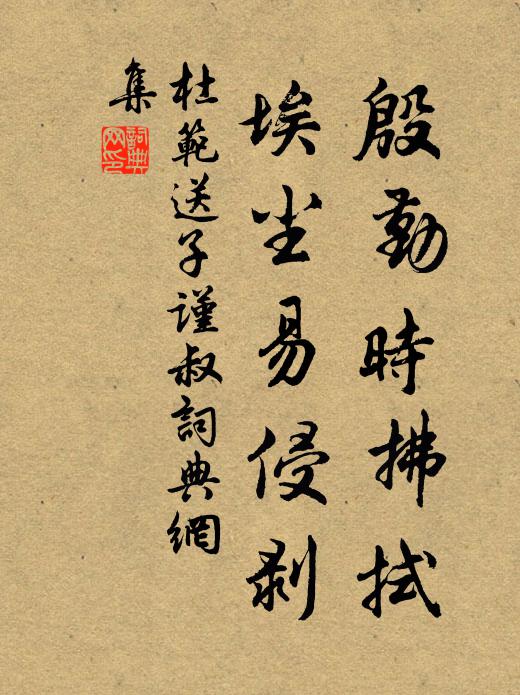 殷勤時拂拭
埃尘易侵剥
杜範送子謹叔詞典網
集
詞典網印